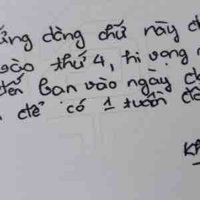 dòng chữ này
vào thứ 4, hi vọng
đến bạn vào ngày
để có 1 tuần